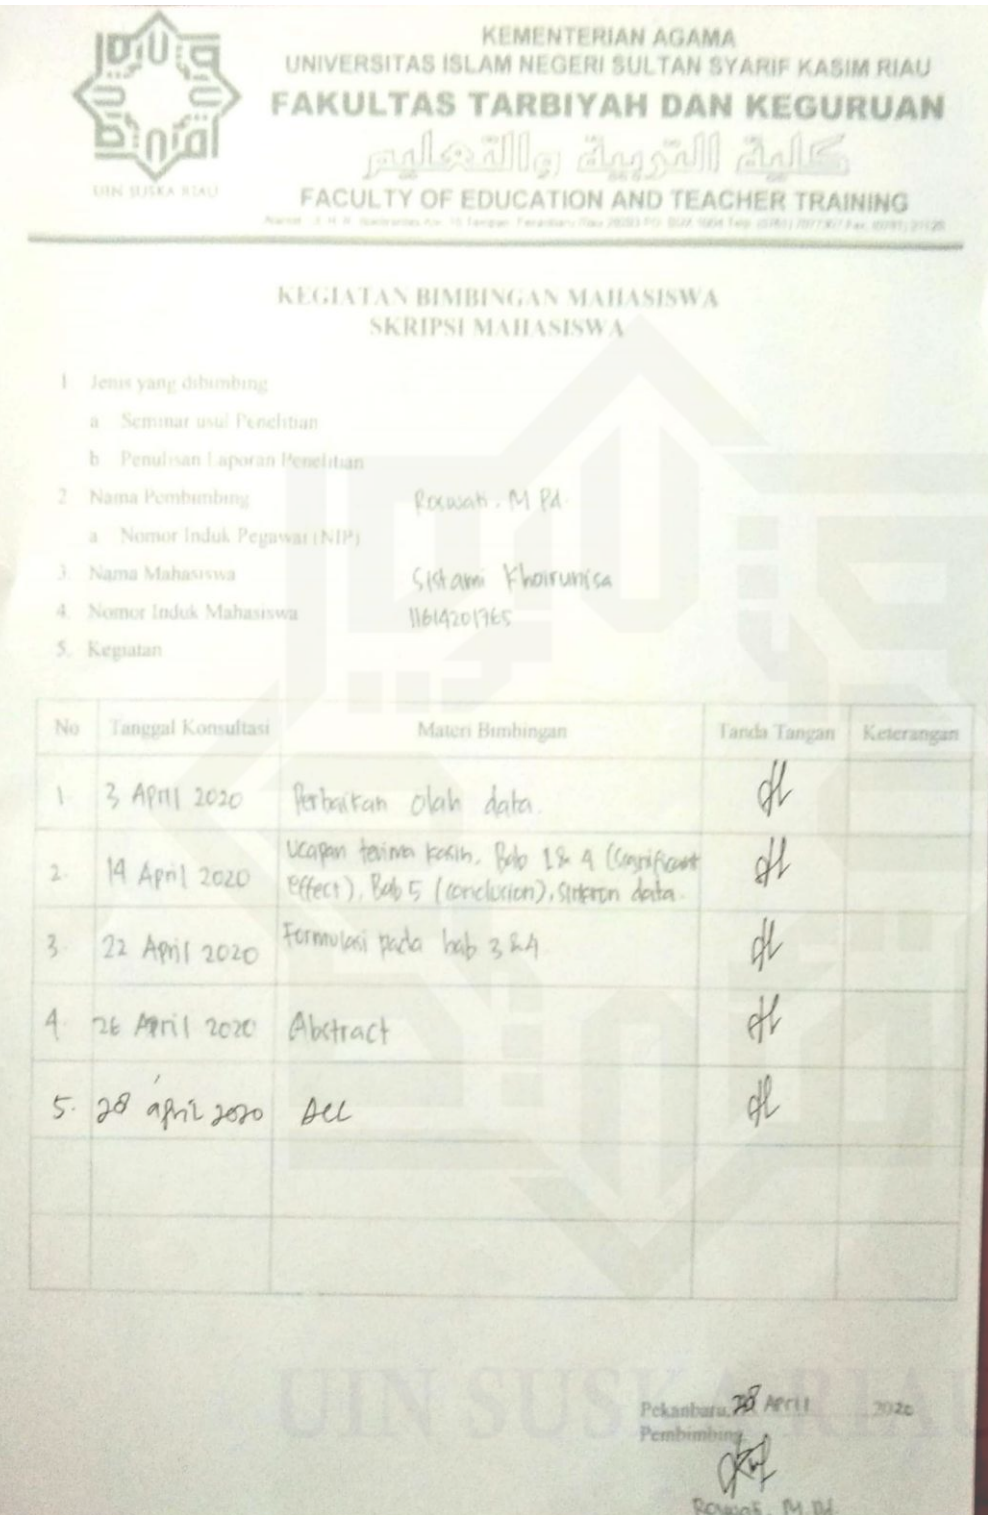 KEMENTERIAN AGAMA
UNIVERSITAS ISLAM NEGERI SULTAN SYARIF KASIM RIAU
FAKULTAS TARBIYAH DAN KEGURUAN
كلية التربية والتعليم
UIN SUSKA RIAU
FACULTY OF EDUCATION AND TEACHER TRAINING
KEGIATAN BIMBINGAN MAHASISWA
SKRIPSI MAHASISWA
1 Jenis yang dibimbing
a Seminar usul Penelitian
b Penulisan Laporan Penelitian
2 Nama Pembimbing M Pd.
a Nomor Induk Pegawai (NIP)
3. Nama Mahasiswa Sistami Khoirunisa
4. Nomor Induk Mahasiswa 11614201765
5. Kegiatan
No Tanggal Konsultasi Materi Bimbingan Tanda Tangan Keterangan
1. 3 April 2020 Perbaikan olah data.
2. 14 April 2020 Ucapan terima kasih, Bab 1 & 4 (significant
effect), Bab 5 (conclusion), sinkron data.
3. 22 April 2020 Formulasi pada bab 3 & 4.
4. 26 April 2020 Abstract
5. 28 april 2020 Acc
UIN SUSKA RIAU
Pekanbaru, 28 April 2020
Pembimbing,
M.Pd.